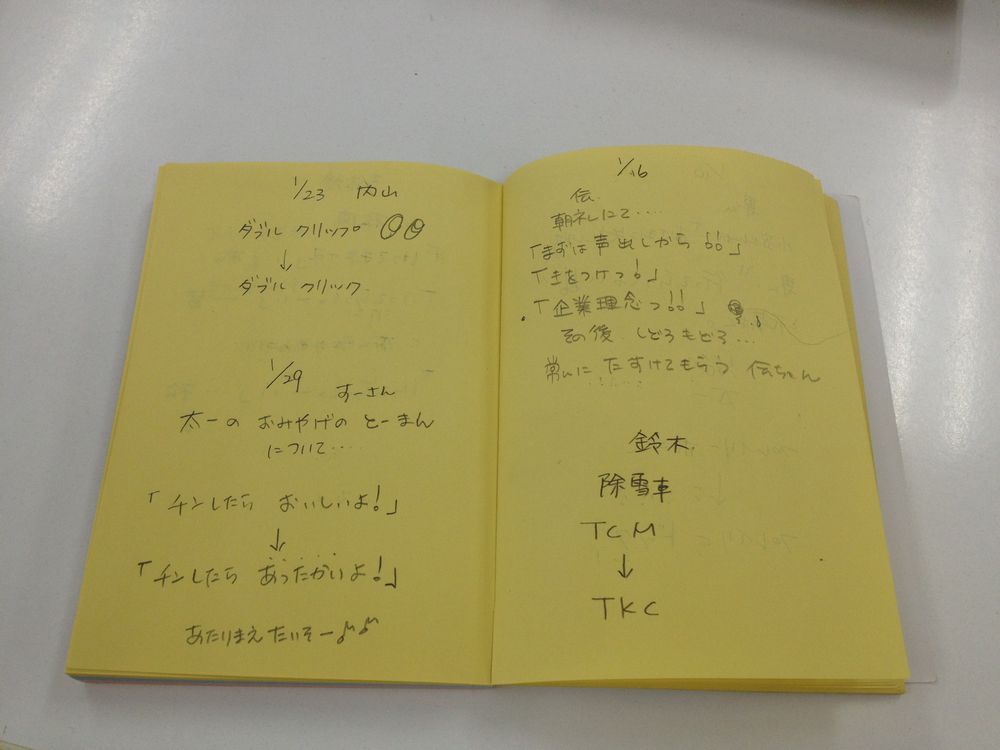 1/23 内山
ダブル クリップ
↓
ダブル クリック
1/29 すーさん
太一の おみやげの とーまん
について‥‥
「チンしたら おいしいよ!」
↓
「チンしたら あったかいよ!」
あたりまえたいそー♪♪
1/16
伝
朝礼にて‥‥
「まずは声出しから!!」
「きをつけっ!」
「企業理念っ!!」
その後 しどろもどろ…
常に たすけてもらう 伝ちゃん
鈴木
除雪車
TCM
↓
TKC